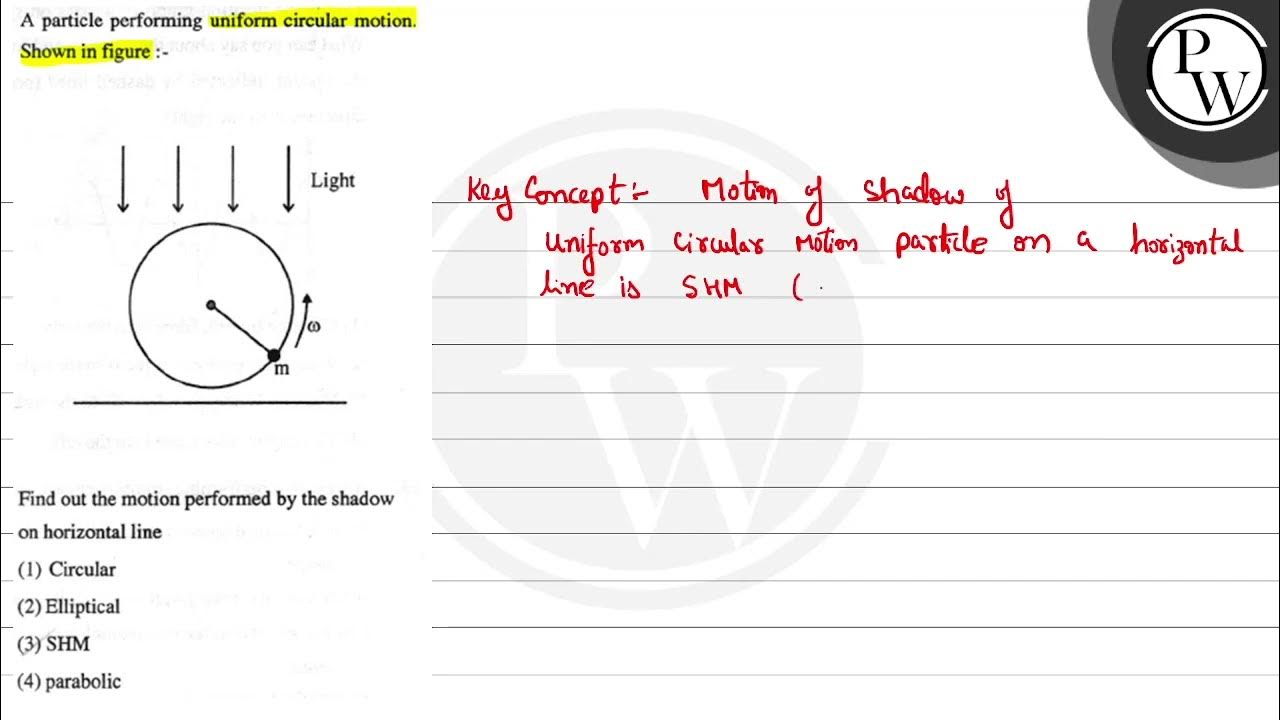 A particle performing uniform circular motion.
Shown in figure :-
Light
ω
m
Find out the motion performed by the shadow
on horizontal line
(1) Circular
(2) Elliptical
(3) SHM
(4) parabolic
Key Concept :- Motion of shadow of
Uniform Circular Motion particle on a horizontal
line is SHM (.
PW
PW